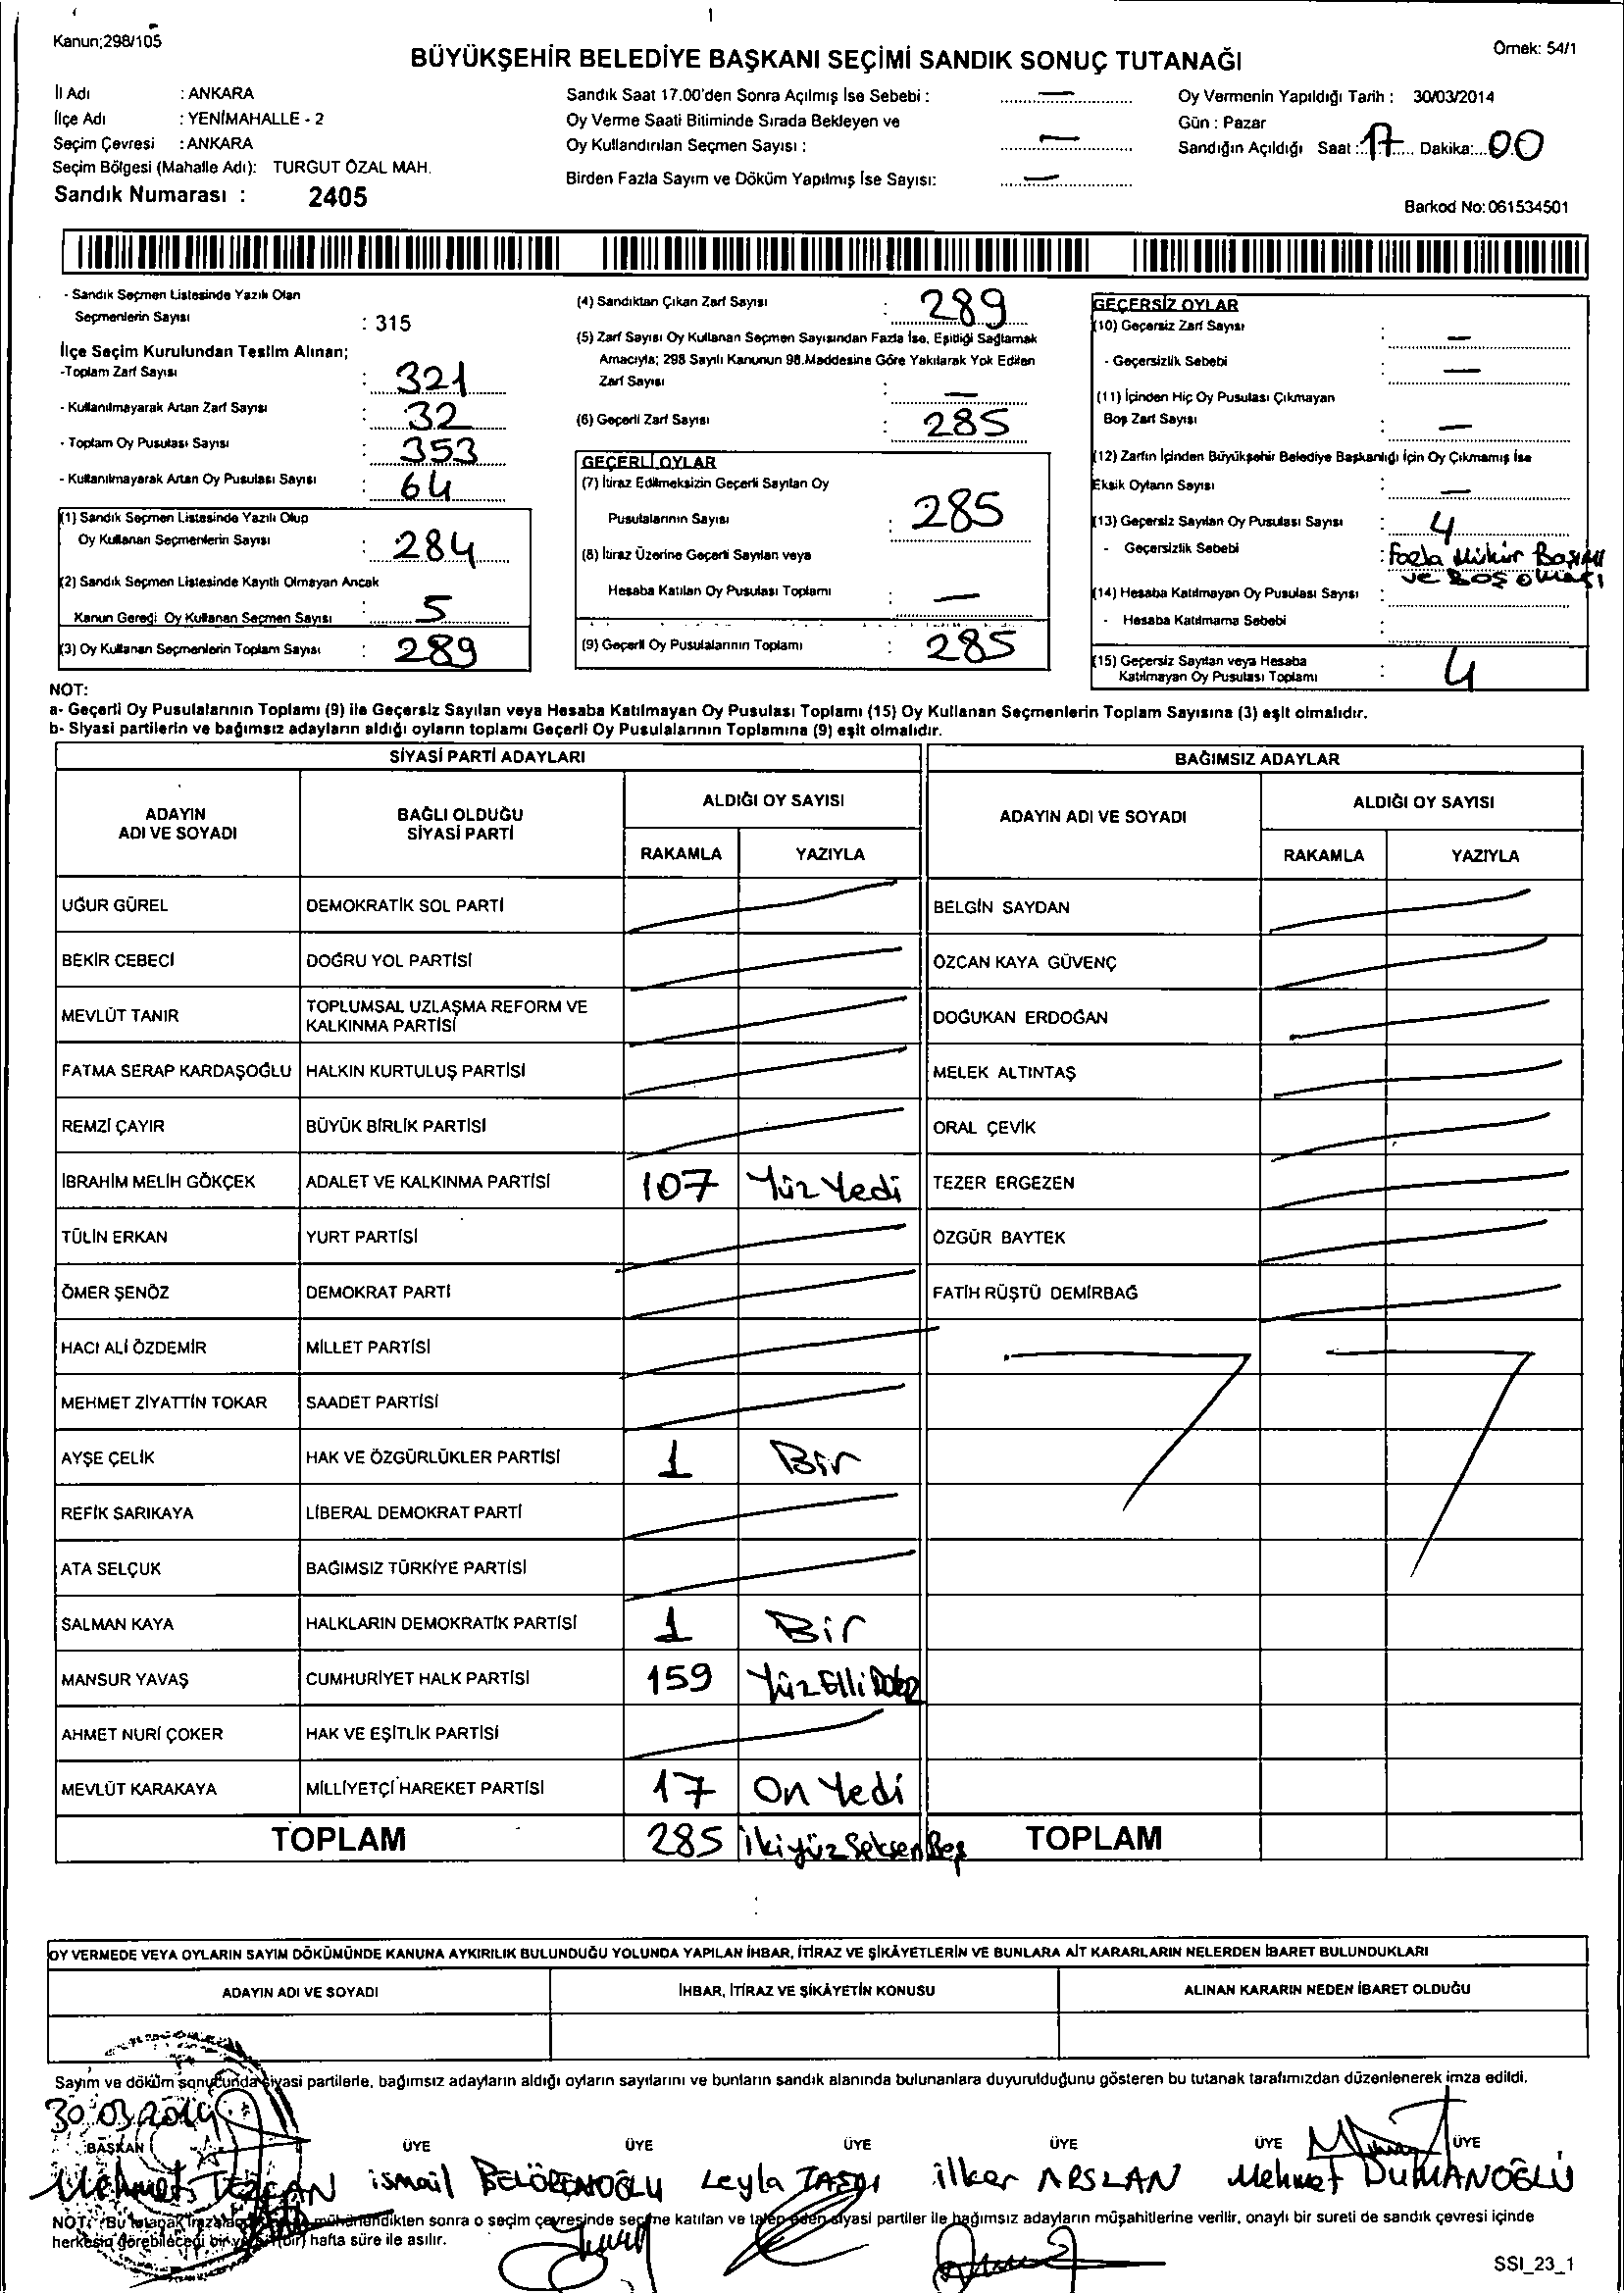 Kanun;298/105
Örnek: 54/1
BÜYÜKŞEHİR BELEDİYE BAŞKANI SEÇİMİ SANDIK SONUÇ TUTANAĞI
İl Adı : ANKARA
İlçe Adı : YENİMAHALLE - 2
Seçim Çevresi : ANKARA
Seçim Bölgesi (Mahalle Adı): TURGUT ÖZAL MAH.
Sandık Numarası : 2405
Sandık Saat 17.00'den Sonra Açılmış İse Sebebi : —
Oy Verme Saati Bitiminde Sırada Bekleyen ve
Oy Kullandırılan Seçmen Sayısı : —
Birden Fazla Sayım ve Döküm Yapılmış İse Sayısı: —
Oy Vermenin Yapıldığı Tarih : 30/03/2014
Gün : Pazar
Sandığın Açıldığı Saat : 17 Dakika: 00
Barkod No: 061534501
- Sandık Seçmen Listesinde Yazılı Olan
Seçmenlerin Sayısı : 315
İlçe Seçim Kurulundan Teslim Alınan;
-Toplam Zarf Sayısı : 321
- Kullanılmayarak Artan Zarf Sayısı : 32
- Toplam Oy Pusulası Sayısı : 353
- Kullanılmayarak Artan Oy Pusulası Sayısı : 64
(1) Sandık Seçmen Listesinde Yazılı Olup
Oy Kullanan Seçmenlerin Sayısı : 284
(2) Sandık Seçmen Listesinde Kayıtlı Olmayan Ancak
Kanun Gereği Oy Kullanan Seçmen Sayısı : 5
(3) Oy Kullanan Seçmenlerin Toplam Sayısı : 289
(4) Sandıktan Çıkan Zarf Sayısı : 289
(5) Zarf Sayısı Oy Kullanan Seçmen Sayısından Fazla İse, Eşitliği Sağlamak
Amacıyla; 298 Sayılı Kanunun 98.Maddesine Göre Yakılarak Yok Edilen
Zarf Sayısı : —
(6) Geçerli Zarf Sayısı : 285
GEÇERLİ OYLAR
(7) İtiraz Edilmeksizin Geçerli Sayılan Oy
Pusulalarının Sayısı : 285
(8) İtiraz Üzerine Geçerli Sayılan veya
Hesaba Katılan Oy Pusulası Toplamı : —
(9) Geçerli Oy Pusulalarının Toplamı : 285
GEÇERSİZ OYLAR
(10) Geçersiz Zarf Sayısı : —
- Geçersizlik Sebebi : —
(11) İçinden Hiç Oy Pusulası Çıkmayan
Boş Zarf Sayısı : —
(12) Zarfın İçinden Büyükşehir Belediye Başkanlığı İçin Oy Çıkmamış İse
Eksik Oyların Sayısı : —
(13) Geçersiz Sayılan Oy Pusulası Sayısı : 4
- Geçersizlik Sebebi : Fazla Mühür Basımı
ve Boş olması
(14) Hesaba Katılmayan Oy Pusulası Sayısı :
- Hesaba Katılmama Sebebi :
(15) Geçersiz Sayılan veya Hesaba
Katılmayan Oy Pusulası Toplamı : 4
NOT:
a- Geçerli Oy Pusulalarının Toplamı (9) ile Geçersiz Sayılan veya Hesaba Katılmayan Oy Pusulası Toplamı (15) Oy Kullanan Seçmenlerin Toplam Sayısına (3) eşit olmalıdır.
b- Siyasi partilerin ve bağımsız adayların aldığı oyların toplamı Geçerli Oy Pusulalarının Toplamına (9) eşit olmalıdır.
SİYASİ PARTİ ADAYLARI BAĞIMSIZ ADAYLAR
ADAYIN ADI VE SOYADI BAĞLI OLDUĞU SİYASİ PARTİ ALDIĞI OY SAYISI ADAYIN ADI VE SOYADI ALDIĞI OY SAYISI
RAKAMLA YAZIYLA RAKAMLA YAZIYLA
UĞUR GÜREL DEMOKRATİK SOL PARTİ BELGİN SAYDAN
BEKİR CEBECİ DOĞRU YOL PARTİSİ ÖZCAN KAYA GÜVENÇ
MEVLÜT TANIR TOPLUMSAL UZLAŞMA REFORM VE KALKINMA PARTİSİ DOĞUKAN ERDOĞAN
FATMA SERAP KARDAŞOĞLU HALKIN KURTULUŞ PARTİSİ MELEK ALTINTAŞ
REMZİ ÇAYIR BÜYÜK BİRLİK PARTİSİ ORAL ÇEVİK
İBRAHİM MELİH GÖKÇEK ADALET VE KALKINMA PARTİSİ 107 Yüz Yedi TEZER ERGEZEN
TÜLİN ERKAN YURT PARTİSİ ÖZGÜR BAYTEK
ÖMER ŞENÖZ DEMOKRAT PARTİ FATİH RÜŞTÜ DEMİRBAĞ
HACI ALİ ÖZDEMİR MİLLET PARTİSİ
MEHMET ZİYATTİN TOKAR SAADET PARTİSİ
AYŞE ÇELİK HAK VE ÖZGÜRLÜKLER PARTİSİ 1 Bir
REFİK SARIKAYA LİBERAL DEMOKRAT PARTİ
ATA SELÇUK BAĞIMSIZ TÜRKİYE PARTİSİ
SALMAN KAYA HALKLARIN DEMOKRATİK PARTİSİ 1 Bir
MANSUR YAVAŞ CUMHURİYET HALK PARTİSİ 159 Yüz Elli Dokuz
AHMET NURİ ÇOKER HAK VE EŞİTLİK PARTİSİ
MEVLÜT KARAKAYA MİLLİYETÇİ HAREKET PARTİSİ 17 On Yedi
TOPLAM 285 İkiyüz Seksen Beş TOPLAM
OY VERMEDE VEYA OYLARIN SAYIM DÖKÜMÜNDE KANUNA AYKIRILIK BULUNDUĞU YOLUNDA YAPILAN İHBAR, İTİRAZ VE ŞİKÂYETLERİN VE BUNLARA AİT KARARLARIN NELERDEN İBARET BULUNDUKLARI
ADAYIN ADI VE SOYADI İHBAR, İTİRAZ VE ŞİKÂYETİN KONUSU ALINAN KARARIN NEDEN İBARET OLDUĞU
Sayım ve döküm sonucunda siyasi partilerle, bağımsız adayların aldığı oyların sayılarını ve bunların sandık alanında bulunanlara duyurulduğunu gösteren bu tutanak tarafımızdan düzenlenerek imza edildi.
30.03.2014
BAŞKAN ÜYE ÜYE ÜYE ÜYE ÜYE ÜYE
Mehmet TEZCAN ismail BELÖRENOĞLU Leyla TAŞÇI ilker ARSLAN Mehmet DUMANOĞLU
NOT: (Bu tutanak mühürlendikten sonra o seçim çevresinde seçime katılan ve talep eden siyasi partiler ile bağımsız adayların müşahitlerine verilir, onaylı bir sureti de sandık çevresi içinde
herkesin görebileceği bir (bir) hafta süre ile asılır.
SSI_23_1